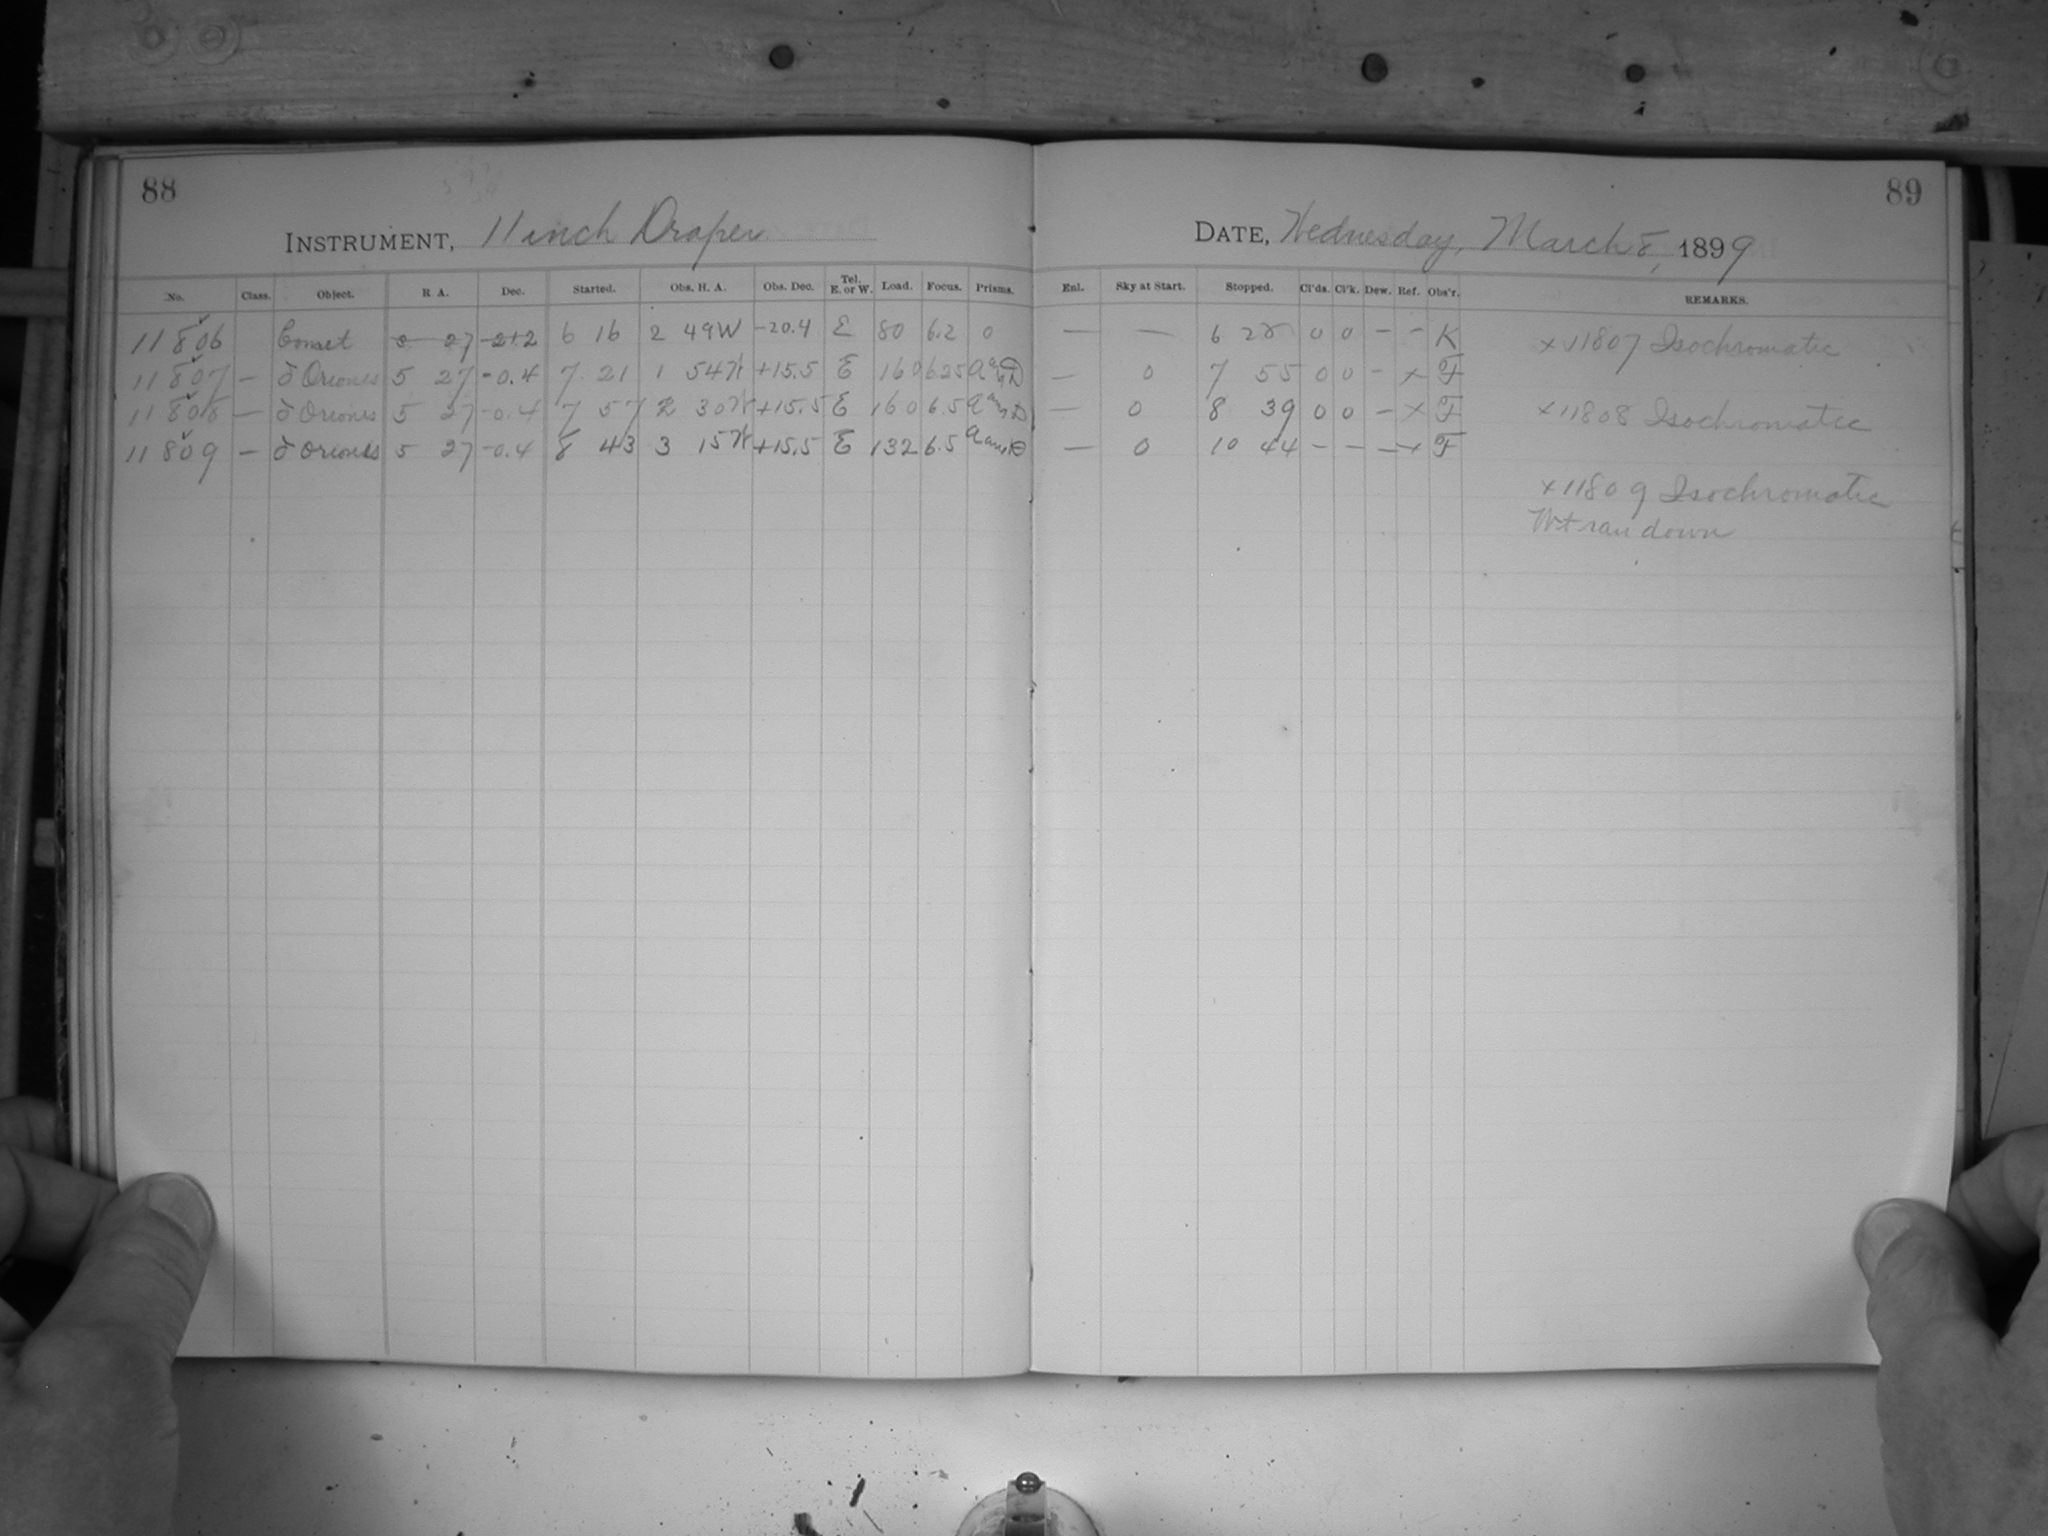 88
INSTRUMENT, 11 inch Draper
No. Class. Object. R A. Dec. Started. Obs. H. A. Obs. Dec. Tel. E. or W. Load. Focus. Prisms.
11806 Comet 27 -2+2 6 16 2 49W -20.4 E 80 6.2 0
11807 — δ Orionis 5 27 -0.4 7 21 1 54W +15.5 E 160 6.25
11808 — δ Orionis 5 27 -0.4 7 57 2 30W +15.5 E 160 6.5
11809 — δ Orionis 5 27 -0.4 8 43 3 15W +15.5 E 132 6.5
89
DATE, Wednesday, March 8, 1899
Enl. Sky at Start. Stopped. Cl'ds. Cl'k. Dew. Ref. Obs'r. REMARKS.
— — 6 0 0 — — K
— 0 7 55 0 0 - x F
— 0 8 39 0 0 - x F
— 0 10 44 — — — x F
x 11807 Isochromatic
x 11808 Isochromatic
x 11809 Isochromatic
Wt ran down